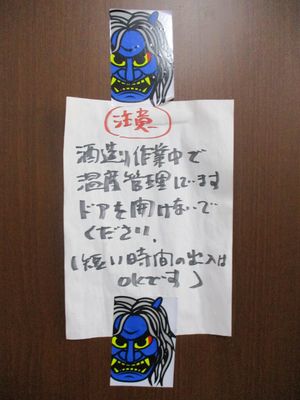 注意
酒造り作業中で
温度管理しています
ドアを開けないで
ください。
(短い時間の出入は
OKです)